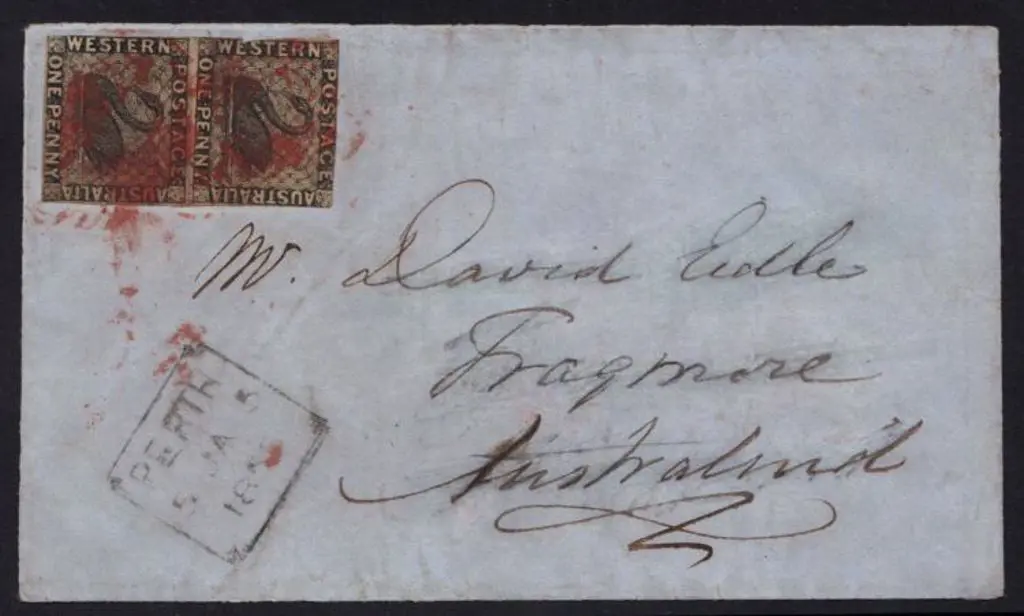 WESTERN
POSTAGE
AUSTRALIA
ONE PENNY
WESTERN
POSTAGE
AUSTRALIA
ONE PENNY
Mr. David Edle
Fragmore
Australind
PERTH
5 JA 5